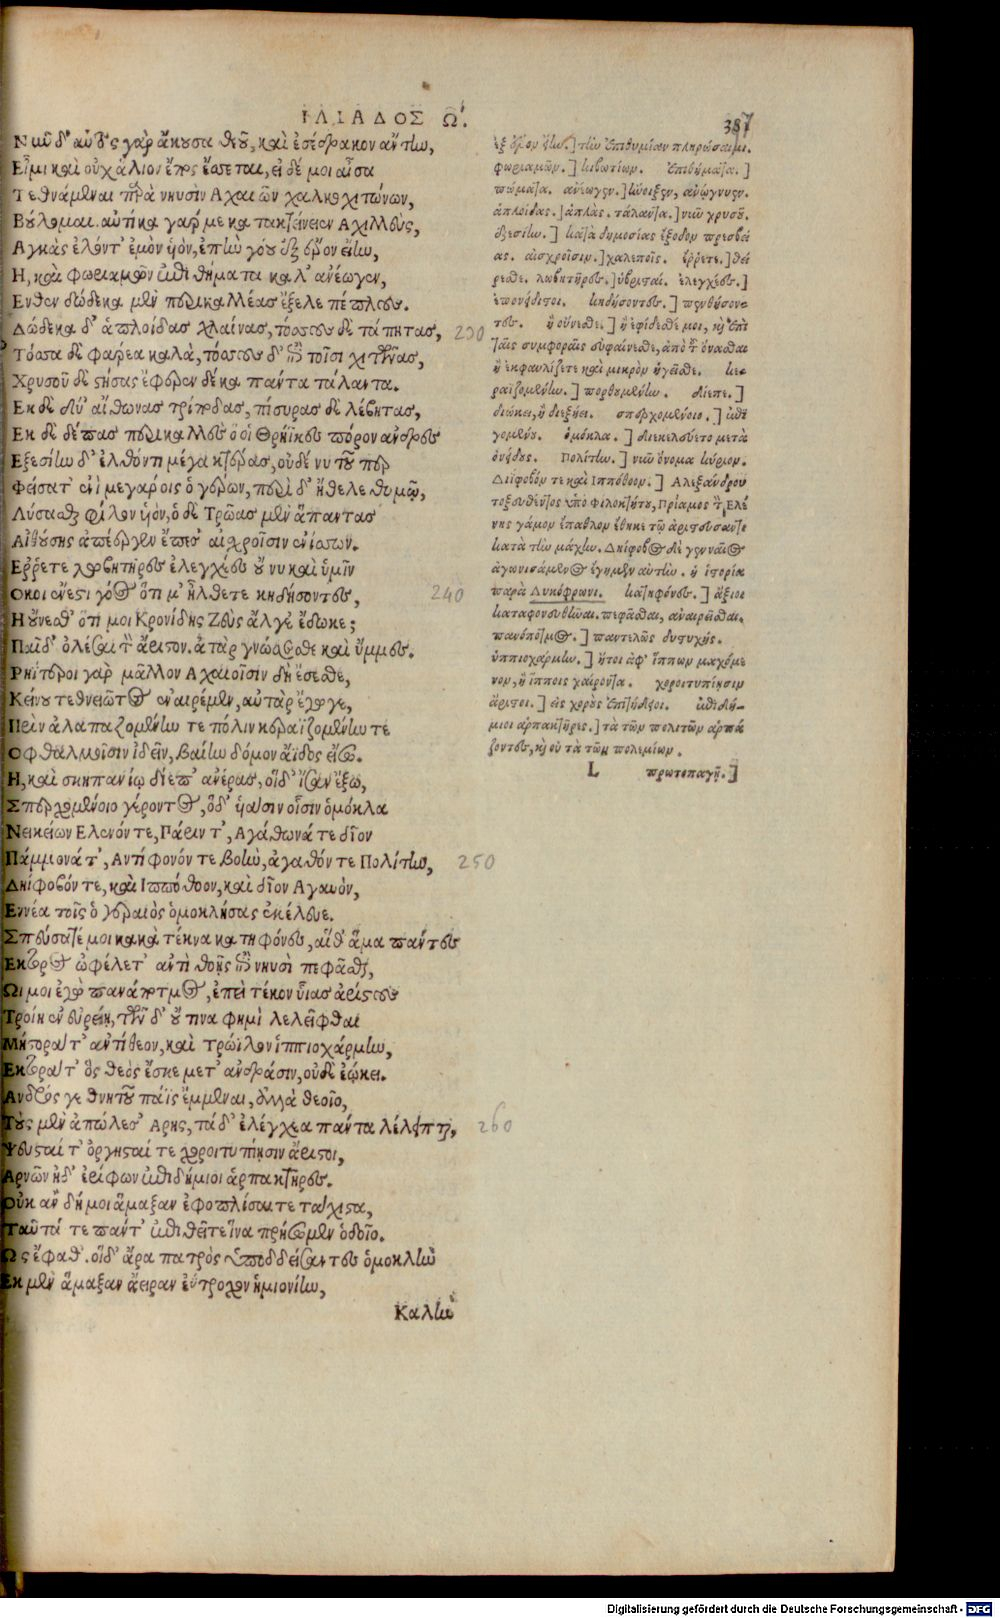 ΙΛΙΑΔΟΣ Ω.
387
Νῦν δ' αὐτὸς γὰρ ἄκουσα θεοῦ, καὶ ἐσέδρακον ἄντην,
Εἶμι καὶ οὐχ ἅλιον ἔπος ἔσσεται, εἰ δέ μοι αἶσα
Τεθνάμεναι παρὰ νηυσὶν Αχαιῶν χαλκοχιτώνων,
Βούλομαι. αὐτίκα γάρ με κατακτείνειεν Αχιλλεὺς,
Αγκὰς ἑλόντ' ἐμὸν υἱὸν, ἐπὴν γόου ἐξ ἔρον εἵην,
Η, καὶ φωριαμῶν ἐπιθήματα κάλ' ἀνέωγεν,
Ενθεν δώδεκα μὲν περικαλλέας ἔξελε πέπλους.
Δώδεκα δ' ἁπλοίδας χλαίνας, τόσσους δὲ τάπητας, 230
Τόσσα δὲ φάρεα καλὰ, τόσσους δ' ἐπὶ τοῖσι χιτῶνας,
Χρυσοῦ δὲ στήσας ἔφερεν δέκα πάντα τάλαντα.
Εκ δὲ δύ' αἴθωνας τρίποδας, πίσυρας δὲ λέβητας,
Εκ δὲ δέπας περικαλλὲς ὅ οἱ Θρήϊκες πόρον ἄνδρες
Εξεσίην δ' ἐλθόντι μέγα κτέρας, οὐδέ νυ τοῦ περ
Φείσατ' ἐνὶ μεγάροις ὁ γέρων, περὶ δ' ἤθελε θυμῷ,
Λύσασθαι φίλον υἱὸν, ὁ δὲ Τρῶας μὲν ἅπαντας
Αἰθούσης ἀπέεργεν ἔπεσ' αἰχροῖσιν ἐνίσσων.
Ερρετε λωβητῆρες ἐλεγχέες οὔ νυ καὶ ὑμῖν
Οἴκοι ἔνεστι γόος ὅτι μ' ἤλθετε κηδήσοντες, 240
Η οὔνεσθ' ὅτι μοι Κρονίδης Ζεὺς ἄλγε ἔδωκε;
Παῖδ' ὀλέσαι τὸν ἄριστον. ἀτὰρ γνώσεσθε καὶ ὔμμες.
Ρηΐτεροι γὰρ μᾶλλον Αχαιοῖσιν δὴ ἔσεσθε,
Κείνου τεθνειῶτος ἐναιρέμεν, αὐτὰρ ἔγωγε,
Πρὶν ἀλαπαζομένην τε πόλιν κεραϊζομένην τε
Οφθαλμοῖσιν ἰδεῖν, βαίην δόμον ἄϊδος εἴσω.
Η, καὶ σκηπανίῳ δίεπ' ἀνέρας, οἵδ' ἴσαν ἔξω,
Σπερχομένοιο γέροντος, ὅδ' υἱάσιν οἷσιν ὁμόκλα
Νεικείων Ελενόν τε, Πάριν τ', Αγάθωνά τε δῖον
Πάμμονά τ', Αντίφονόν τε βοὴν, ἀγαθόν τε Πολίτην, 250
Δηΐφοβόν τε, καὶ Ιππόθοον, καὶ δῖον Αγαυὸν,
Εννέα τοῖς ὁ γεραιὸς ὁμοκλήσας ἐκέλευε.
Σπεύσατέ μοι κακὰ τέκνα κατηφόνες, αἴθ' ἅμα πάντες
Εκτορος ὠφέλετ' ἀντὶ θοῇς ἐπὶ νηυσὶ πεφᾶσθαι,
Ωι μοι ἐγὼ πανάποτμος, ἐπεὶ τέκον υἷας ἀρίστους
Τροίῃ ἐν εὐρείῃ, τῶν δ' οὔ τινα φημὶ λελεῖφθαι
Μήστορά τ' ἀντίθεον, καὶ Τρώϊλον ἱππιοχάρμην,
Εκτορά τ' ὃς θεὸς ἔσκε μετ' ἀνδράσιν, οὐδὲ ἐῴκει.
Ανδρός γε θνητοῦ πάϊς ἔμμεναι, ἀλλὰ θεοῖο,
Τοὺς μὲν ἀπώλεσ' Αρης, τὰ δ' ἐλέγχεα πάντα λέλειπται, 260
Ψεῦσταί τ' ὀρχησταί τε χοροιτυπίῃσιν ἄριστοι,
Αρνῶν ἠδ' ἐρίφων ἐπιδήμιοι ἁρπακτῆρες.
Οὐκ ἂν δή μοι ἅμαξαν ἐφοπλίσαιτε τάχιστα,
Ταῦτά τε πάντ' ἐπιθεῖτε ἵνα πρήσσωμεν ὁδοῖο.
Ως ἔφαθ'. οἵδ' ἄρα πατρὸς ὑποδδείσαντες ὁμοκλὴν
Εκ μὲν ἅμαξαν ἄειραν ἐΰτροχον ἡμιονίην,
Καλὴν
ἐξ ἔρον εἵην.] τὴν ἐπιθυμίαν πληρώσαιμι.
φωριαμῶν.] κιβωτίων. ἐπιθήματα.]
πώματα. ἀνέωγεν.] ἤνοιξεν, ἀνῴγνυεν.
ἁπλοίδας.] ἁπλᾶς. τάλαντα.] νῦν χρυσοῦ.
ἐξεσίην.] κατὰ δημοσίας ἔξοδον πρεσβεί
ας. αἰσχροῖσιν.] χαλεποῖς. ἔρρετε.] φθεί
ρεσθε. λωβητῆρες.] ὑβρισταί. ἐλεγχέες.]
ἐπονείδιστοι. κηδήσοντες.] πενθήσον
τες. ἢ οὔνεσθε.] ἢ ἐφίδεσθέ μοι, καὶ ἐπὶ
ταῖς συμφοραῖς εὐφραίνεσθε, ἀπὸ τοῦ ὄνασθαι
ἢ ἐκφαυλίζετε καὶ μικρὸν ἡγεῖσθε. κε
ραϊζομένην.] πορθουμένην. δίεπε.]
διώκει, ἢ διεξῄει. σπερχομένοιο.] ἐπει
γομένου. ὁμόκλα.] διεκελεύετο μετὰ
ὀνείδους. Πολίτην.] νῦν ὄνομα κύριον.
Δηΐφοβόν τε καὶ Ιππόθοον.] Αλεξάνδρου
τοξευθέντος ὑπὸ Φιλοκτήτου, Πρίαμος τὸν Ελέ
νης γάμον ἔπαθλον ἔθηκε τῷ ἀριστεύσαντι
κατὰ τὴν μάχην. Δηΐφοβος δὲ γενναίως
ἀγωνισάμενος ἔγημεν αὐτήν. ἡ ἱστορία
παρὰ Λυκόφρονι. κατηφόνες.] ἄξιοι
καταφονευθῆναι. πεφᾶσθαι, ἀναιρεῖσθαι.
πανάποτμος.] παντελῶς δυστυχής.
ἱππιοχάρμην.] ἤτοι ἀφ' ἵππων μαχόμε
νον, ἢ ἵπποις χαίροντα. χοροιτυπίῃσιν
ἄριστοι.] εἰς χοροὺς ἐπιτήδειοι. ἐπιδή-
μιοι ἁρπακτῆρες.] τὰ τῶν πολιτῶν ἁρπά
ζοντες, καὶ οὐ τὰ τῶν πολεμίων.
L πρωτοπαγῆ.]
Digitalisierung gefördert durch die Deutsche Forschungsgemeinschaft - DFG